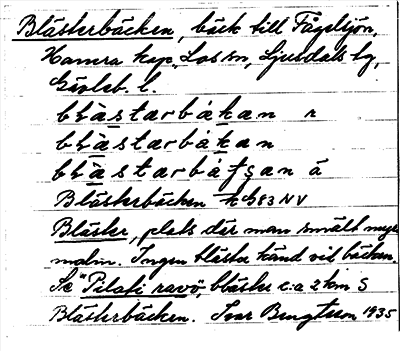 Blästerbäcken, bäck till Fågelsjön,
Hamra kap., Los sn, Ljusdals tg,
Gävleb. l.
blàstarbákan r
blàstarbákan
blàstarbátsan ä
Blästerbäcken kbg83 NV
Bläster, plats där man smält myr-
malm. Ingen bläster känd vid bäcken.
Se "Pilafi ravö", bläster c:a 2 km S
Blästerbäcken. Ivar Bengtsson 1935